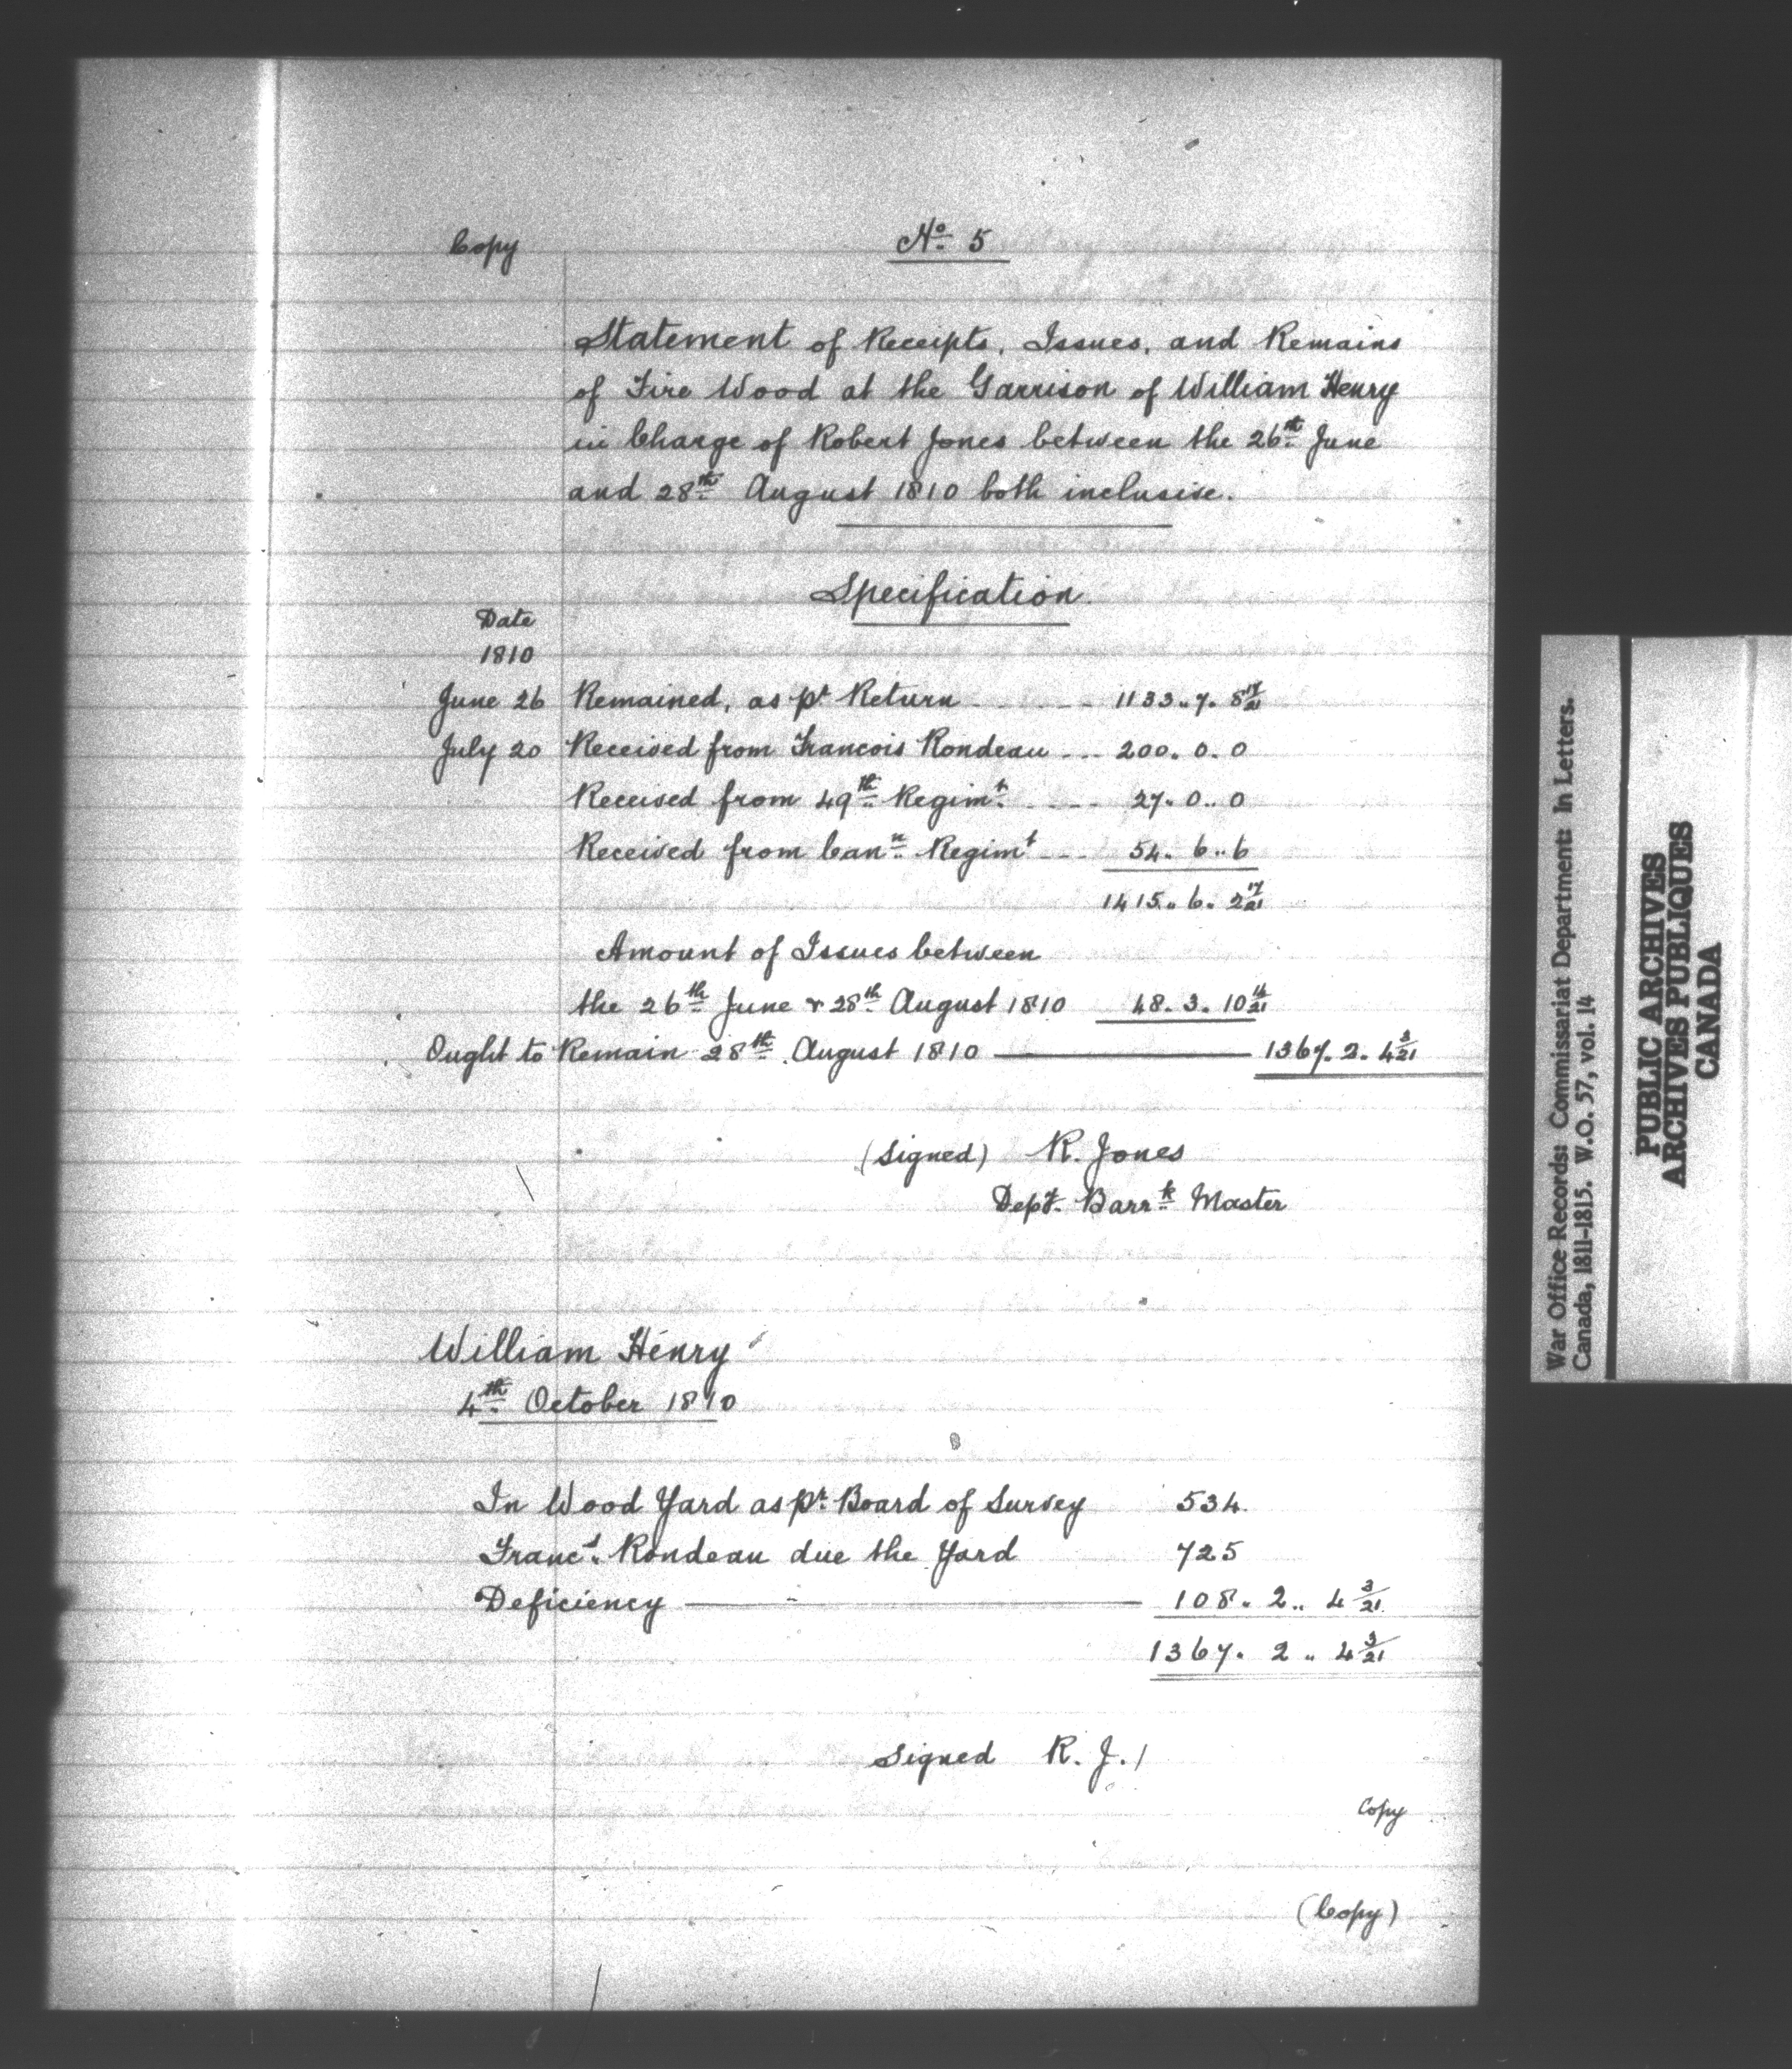 Copy
No. 5
Statement of Receipts, Issues, and Remains
of Fire Wood at the Garrison of William Henry
in Charge of Robert Jones between the 26th June
and 28th August 1810 both inclusive.
Specification.
Date
1810
June 26 Remained, as pr Return 1133.. 7. 8 17/21
July 20 Received from Francois Rondeau 200. 0. 0
Received from 49th Regimt. 27. 0.. 0
Received from Cann. Regimt 54. 6.. 6
1415.. 6. 2 17/21
Amount of Issues between
the 26th June & 28th August 1810 48. 3. 10 14/21
Ought to Remain 28th August 1810 1367. 2. 4 3/21
(signed) R. Jones
Dept. Barrk Master
William Henry
4th October 1810
In Wood Yard as pr. Board of Survey 534.
Francs. Rondeau due the Yard 725
Deficiency 108. 2.. 4 3/21
1367. 2.. 4 3/21
Signed R. J. /
Copy
(Copy)
War Office Records: Commissariat Department: In Letters.
Canada, 1811-1815. W.O. 57, vol. 14
PUBLIC ARCHIVES
ARCHIVES PUBLIQUES
CANADA